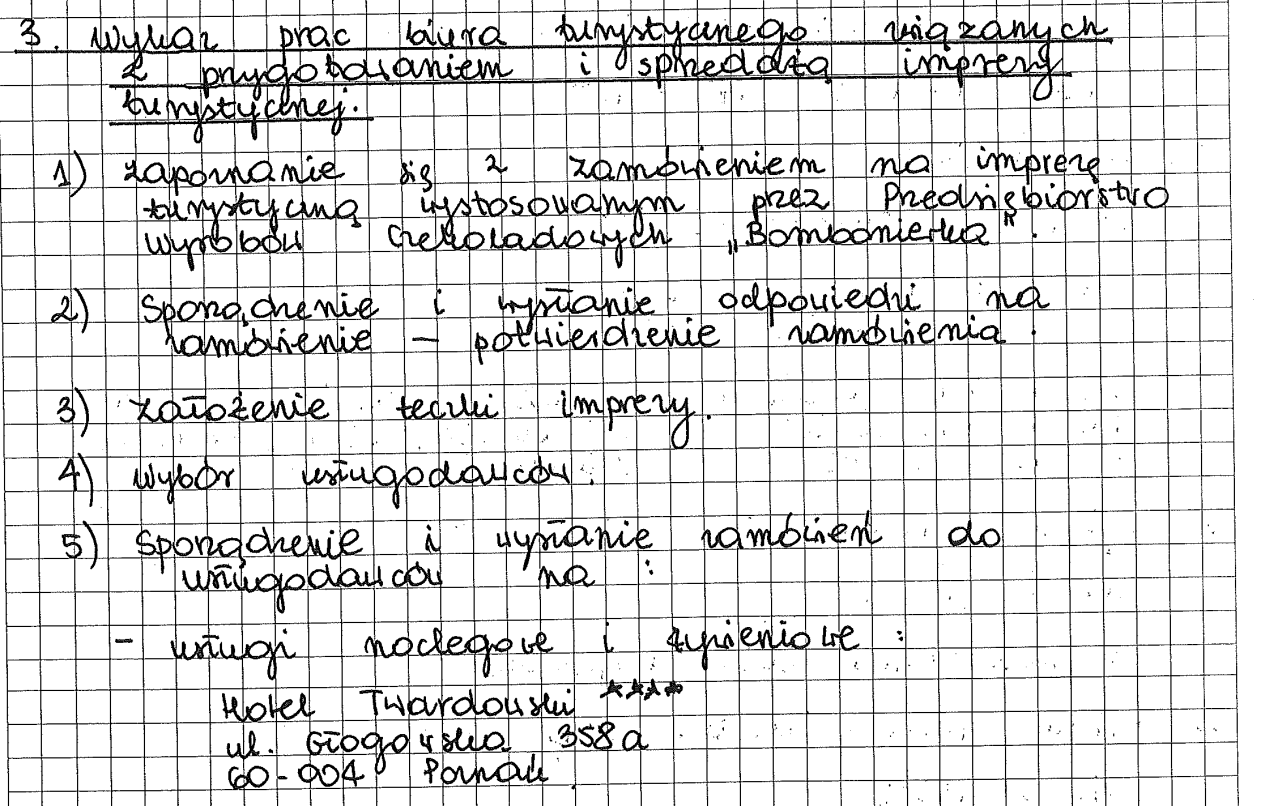 3. Wykaz prac biura turystycznego wiązanych
z przygotowaniem i sprzedażą imprezy
turystycznej.
1) zapoznanie się z zamówieniem na imprezę
turystyczną wystosowanym przez Przedsiębiorstwo
Wyrobów Czekoladowych „Bombonierka".
2) Sporządzenie i wysłanie odpowiedzi na
zamówienie – potwierdzenie zamówienia.
3) założenie teczki imprezy.
4) Wybór usługodawców.
5) Sporządzenie i wysłanie zamówień do
usługodawców na :
- usługi noclegowe i żywieniowe :
Hotel Twardowski ****
ul. Głogowska 358a
60-004 Poznań